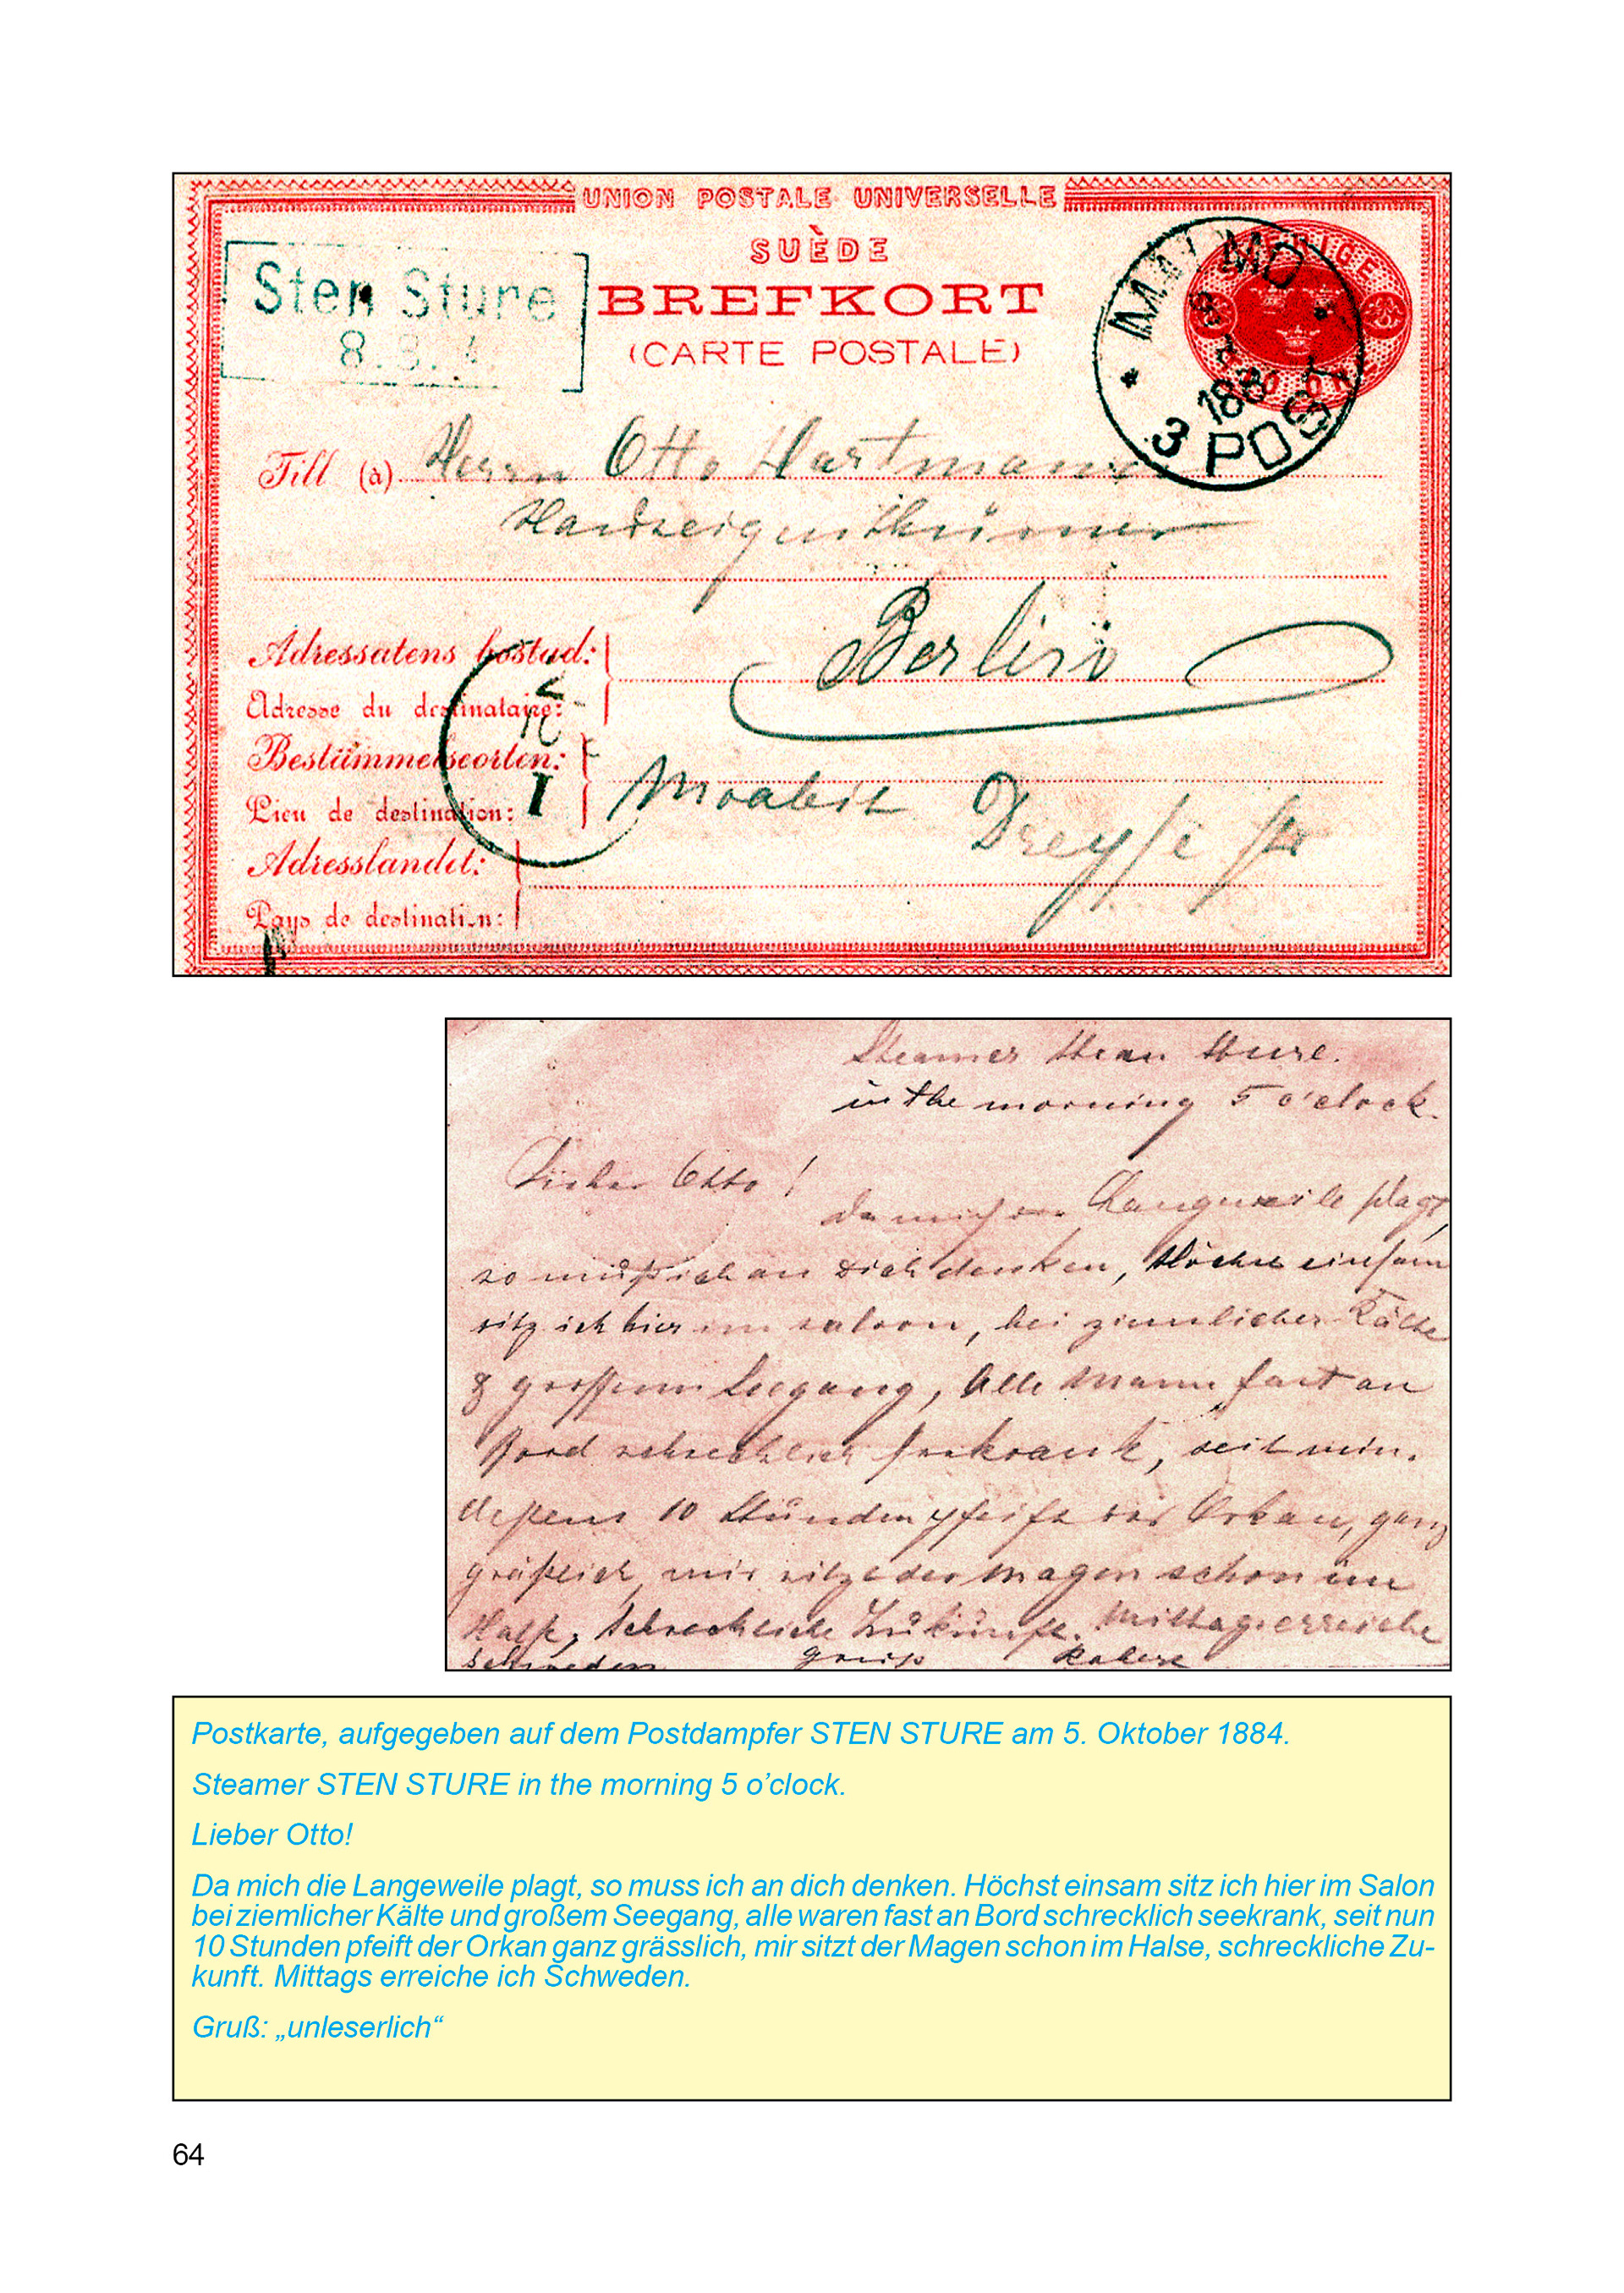 UNION POSTALE UNIVERSELLE
SUÈDE
BREFKORT
(CARTE POSTALE)
Sten Sture
8.
MALMÖ
188
3 POST
Till (à) Herrn Otto Hartmann
Berlin
Adressatens bostad:
Adresse du destinataire:
Bestämmelseorten:
Lieu de destination:
Moabit Dreyse str
Adresslandet:
Pays de destination:
I
Steamer Sten Sture.
in the morning 5 o'clock.
Lieber Otto!
Da mich die Langeweile plagt,
so muß ich an dich denken, Höchst einsam
sitz ich hier im saloon, bei ziemlicher Kälte
& großem Seegang, Alle Mann fast an
Bord schrecklich seekrank, seit min-
destens 10 Stunden pfeift der Orkan, ganz
gräßlich, mir sitzt der Magen schon im
Halse, schreckliche Zukunft. Mittags erreiche
Schweden Gruß
Postkarte, aufgegeben auf dem Postdampfer STEN STURE am 5. Oktober 1884.
Steamer STEN STURE in the morning 5 o’clock.
Lieber Otto!
Da mich die Langeweile plagt, so muss ich an dich denken. Höchst einsam sitz ich hier im Salon
bei ziemlicher Kälte und großem Seegang, alle waren fast an Bord schrecklich seekrank, seit nun
10 Stunden pfeift der Orkan ganz grässlich, mir sitzt der Magen schon im Halse, schreckliche Zu-
kunft. Mittags erreiche ich Schweden.
Gruß: „unleserlich“
64